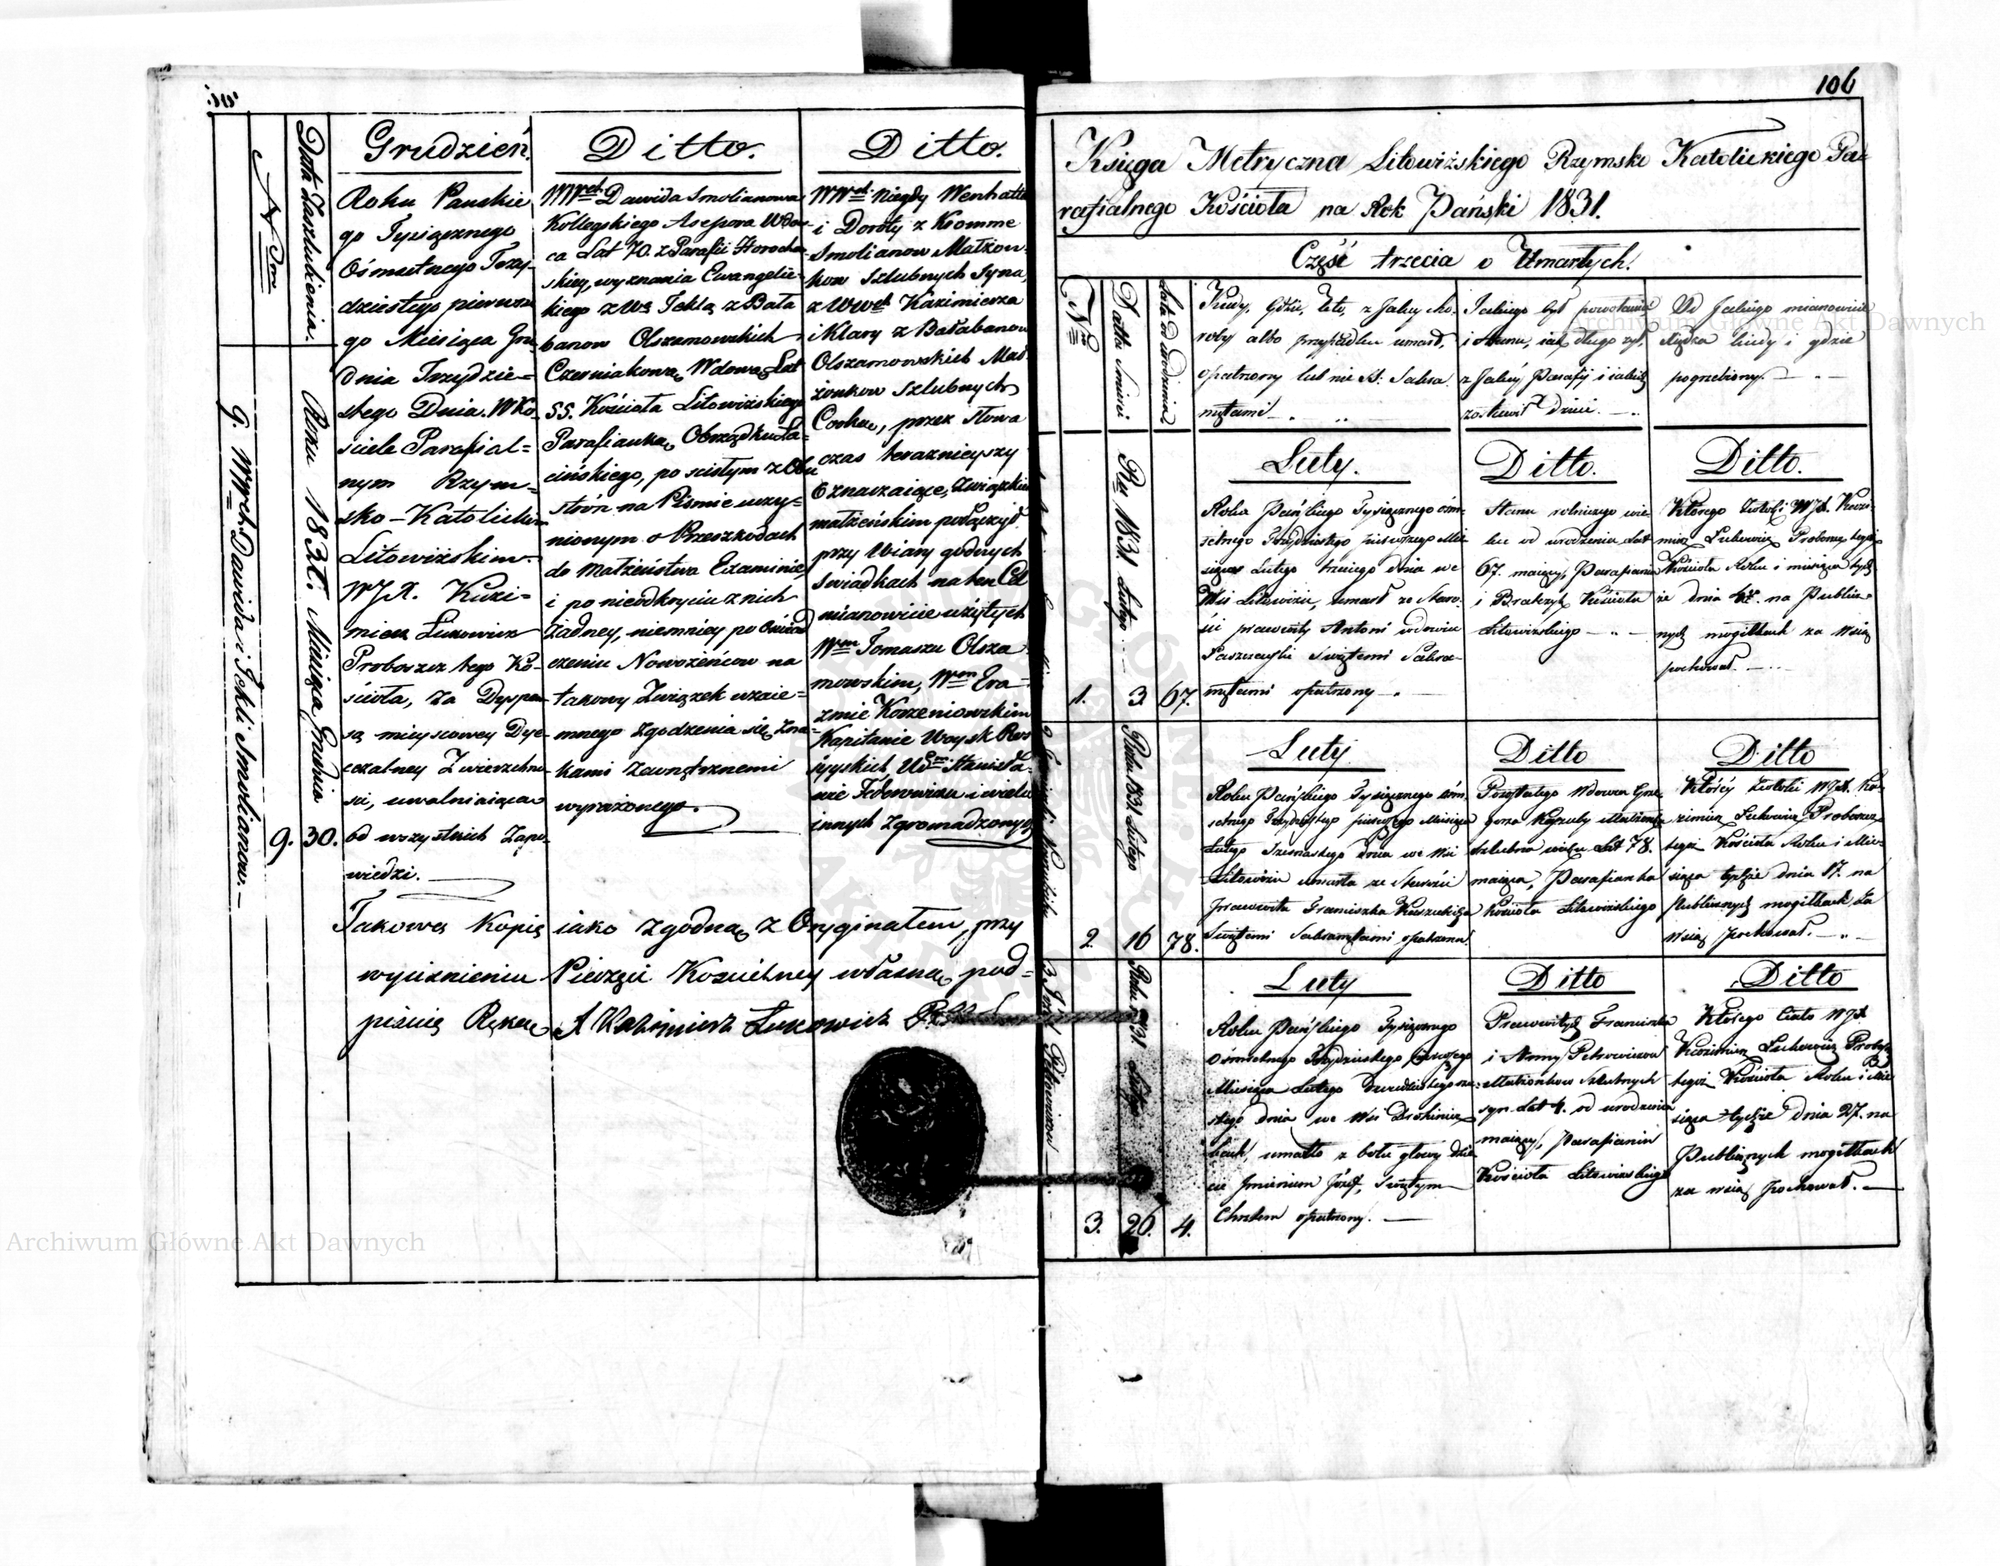 Grudzień.
Roku Pańskie
go Tysiącznego
Ośmsetnego Trzy-
dziestego pierwsze
go Miesiąca Gru
dnia Trzydzie=
stego Dnia. W Ko=
sciele Parafial=
nym Rzym=
sko-Katolickim
Litowiżskim.
WJX. Kazi=
mierz Łukowicz
Proboszcz tego Ko-
ścioła, za Dyspen
są mieyscowey Dye
cezalney Zwierzchno
sci, uwalniaiącą
od wszystkich Zapo
wiedzi.
Ditto.
Dawida Smolianowa
Kollegskiego Asesora Wdow
ca Lat 70. z Parafii Horocho
skiey, wyznania Ewangelic=
kiego z Wą Teklą z Bała
banow Olszamowskich
Czerniakową Wdową Lat
55. Kościoła Litowiżskiego
Parafianką, Obrządku Ła=
cińskiego, po scisłym z Obu
stron na Piśmie uczy=
nionym o Przeszkodach
do Małżeństwa Examinie,
i po nieodkryciu z nich
żadney, niemniey po Oświad
czeniu Nowożeńcow na
takowy Związek wzaie=
mnego zgodzenia się zna=
kami zewnętrznemi
wyrażonego.
Ditto.
niegdy
i Doroty z Kromme
Smolianow Małżon=
kow Szlubnych Syna,
z Kazimierza
i Klary z Bałabanow
Olszamowskich Mał=
żonkow szlubnych
Corkę, przez słowa
czas teraznieyszy
Oznaczaiące, Związkiem
małżeńskim połączył
przy Wiary godnych
Swiadkach na ten Cel
mianowicie użytych
Wm Tomaszu Olsza
mowskim, Wm Era=
zmie Korzeniowskim
Kapitanie Woysk Ros
syyskich, Stanisła-
wie Fedorowiczu i wielu
innych zgromadzonych
Data Zaszlubienia.
Roku 1831. Miesiąca Grudnia
9. Dawida i Tekli Smolianow.
9. 30.
Takową Kopią iako zgodną z Oryginałem, przy
wyciśnieniu Pieczęci Kościelney własną pod=
pisuię Ręką X Kazimierz Łukowicz
106
Księga Metryczna Litowiżskiego Rzymsko Katolickiego Pa=
rafialnego Kościoła na Rok Pański 1831.
Część trzecia o Umarłych.
Nro
Datta Śmierci
Lata od urodzenia
Kiedy, Gdzie, Kto, z Jakiey cho
roby albo przypadku umarł,
opatrzony lub nie SS. Sakra
mentami
Jakiego był powołania
i Stanu, iak długo żył,
z Jakiey Parafij i iakich
zostawił dzieci.
Od Jakiego mianowicie
Xiędza kiedy i gdzie
pogrzebiony.
Luty.
Roku Pańskiego Tysiącznego ośm=
setnego Trzydziestego pierwszego Mie
siąca Lutego trzeciego dnia we
Wsi Litowiżu, umarł ze Staro
ści pracowity Antoni wdowiec
Swiętemi Sakra=
mentami opatrzony
Ditto.
Stanu rolniczego wie
ku od urodzenia Lat
67. maiący, Parafianin
i Kościoła
Litowizskiego
Ditto.
Którego zwłoki WJX. Kazi=
mierz Łukowicz Proboszcz tegoż
Kościoła Roku i miesiąca tych
że dnia na Publicz=
nych mogiłkach za Wsią
pochował.
Rku 1831 Lutego
1. 3. 67.
Luty
Roku Pańskiego Tysiącznego ośm
setnego Trzydziestego pierwszego Miesiąca
Lutego Szesnastego Dnia we Wsi
Litowiżu umarła ze Starości
pracowita Franciszka
Swiętemi Sakramentami opatrzona
Ditto
Pozostałego Wdowa Grze
gorza
szlubna wieku Lat 78.
maiąca, Parafianka
Kościoła Litowiżskiego
Ditto
Którey zwłoki WJX. Ka-
zimierz Łukowicz Proboszcz
tegoż Kościoła Roku i Mie=
siąca tychże dnia 17. na
Publicznych mogiłkach Za
Wsią pochował.
Roku 1831 Lutego
2. 16 78.
Luty
Roku Pańskiego Tysiącznego
Ośmsetnego Trzydziestego pierwszego
Miesiąca Lutego Dwudziestego szó=
stego dnia we Wsi
umarło z bolu głowy dzie
cie Imieniem Józef, Swiętym
Chrztem opatrzony.
Ditto
Pracowitych Franciszka
i Anny Pietrowiczow
Małżonkow Szlubnych
syn Lat 4. od urodzenia
maiący, Parafianin
Kościoła Litowizskiego
Ditto
Którego Ciało WJX.
Kazimierz Łukowicz
tegoż Kościoła Roku i Mie
siąca tychże dnia 27. na
Publicznych mogiłkach
za wsią pochował.
3. 26. 4.
Archiwum Główne Akt Dawnych
Archiwum Główne Akt Dawnych